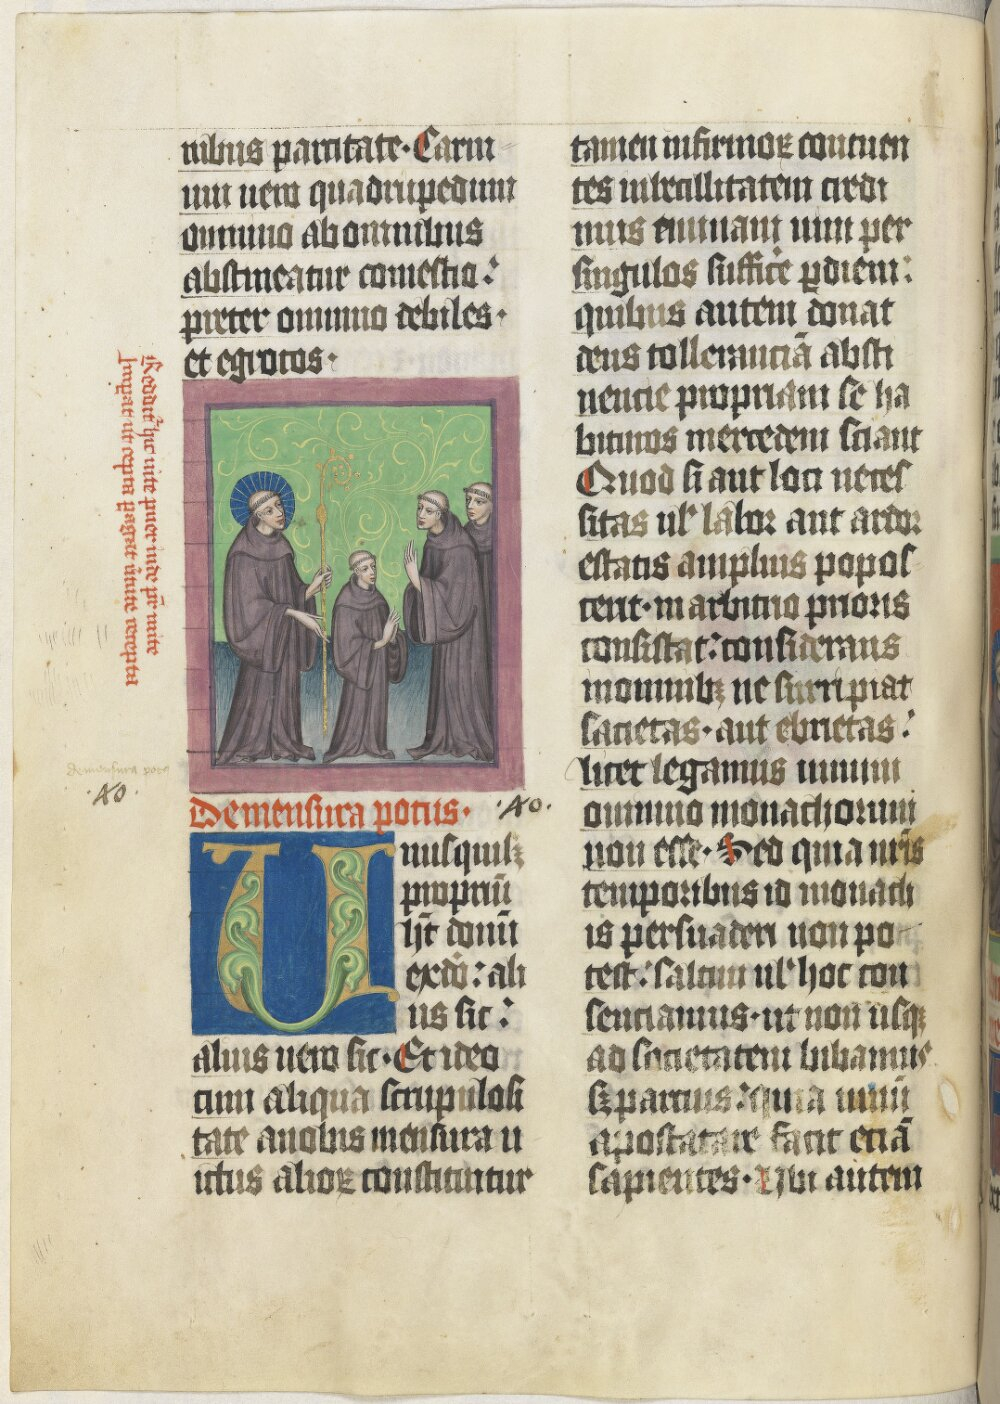 nibus parcitate. Carni
um uero quadrupedum
omnino ab omnibus
abstineatur comestio:
preter omnino debiles.
et egrotos.
Reddit᷑ hic uite puer inde pr̄ mite
Imp̄at ut cepta pagat
demensura potꝯ
.40.
De mensura potus. .40.
Unusquisqꝫ
propriū
h̄t donū
ex dō: ali
us sic:
alius uero sic. Et ideo
cum aliqua scrupulosi
tate a nobis mensura u
ictus alioꝝ constituitur
tamen infirmoꝝ contuen
tes inbecillitatem credi
mus eminam uini per
singulos sufficē p̱ diem:
quibus autem donat
deus tollerantiā absti
nencie propriam se ha
bituros mercedem sciant
Quod si aut loci neces
sitas ul' labor aut ardor
estatis amplius popos
cerit. in arbitrio prioris
consistat: considerans
in omnibꝫ ne surripiat
satietas. aut ebrietas:
licet legamus uinum
omnino monachorum
non esse. Sed quia nr̄is
temporibus id monach
is persuaderi non po
test: saltim ul' hoc con
senciamus. ut non usqꝫ
ad sacietatem bibamus
sꝫ parcius: quia uinū
apostatare facit eciā
sapientes. Ubi autem